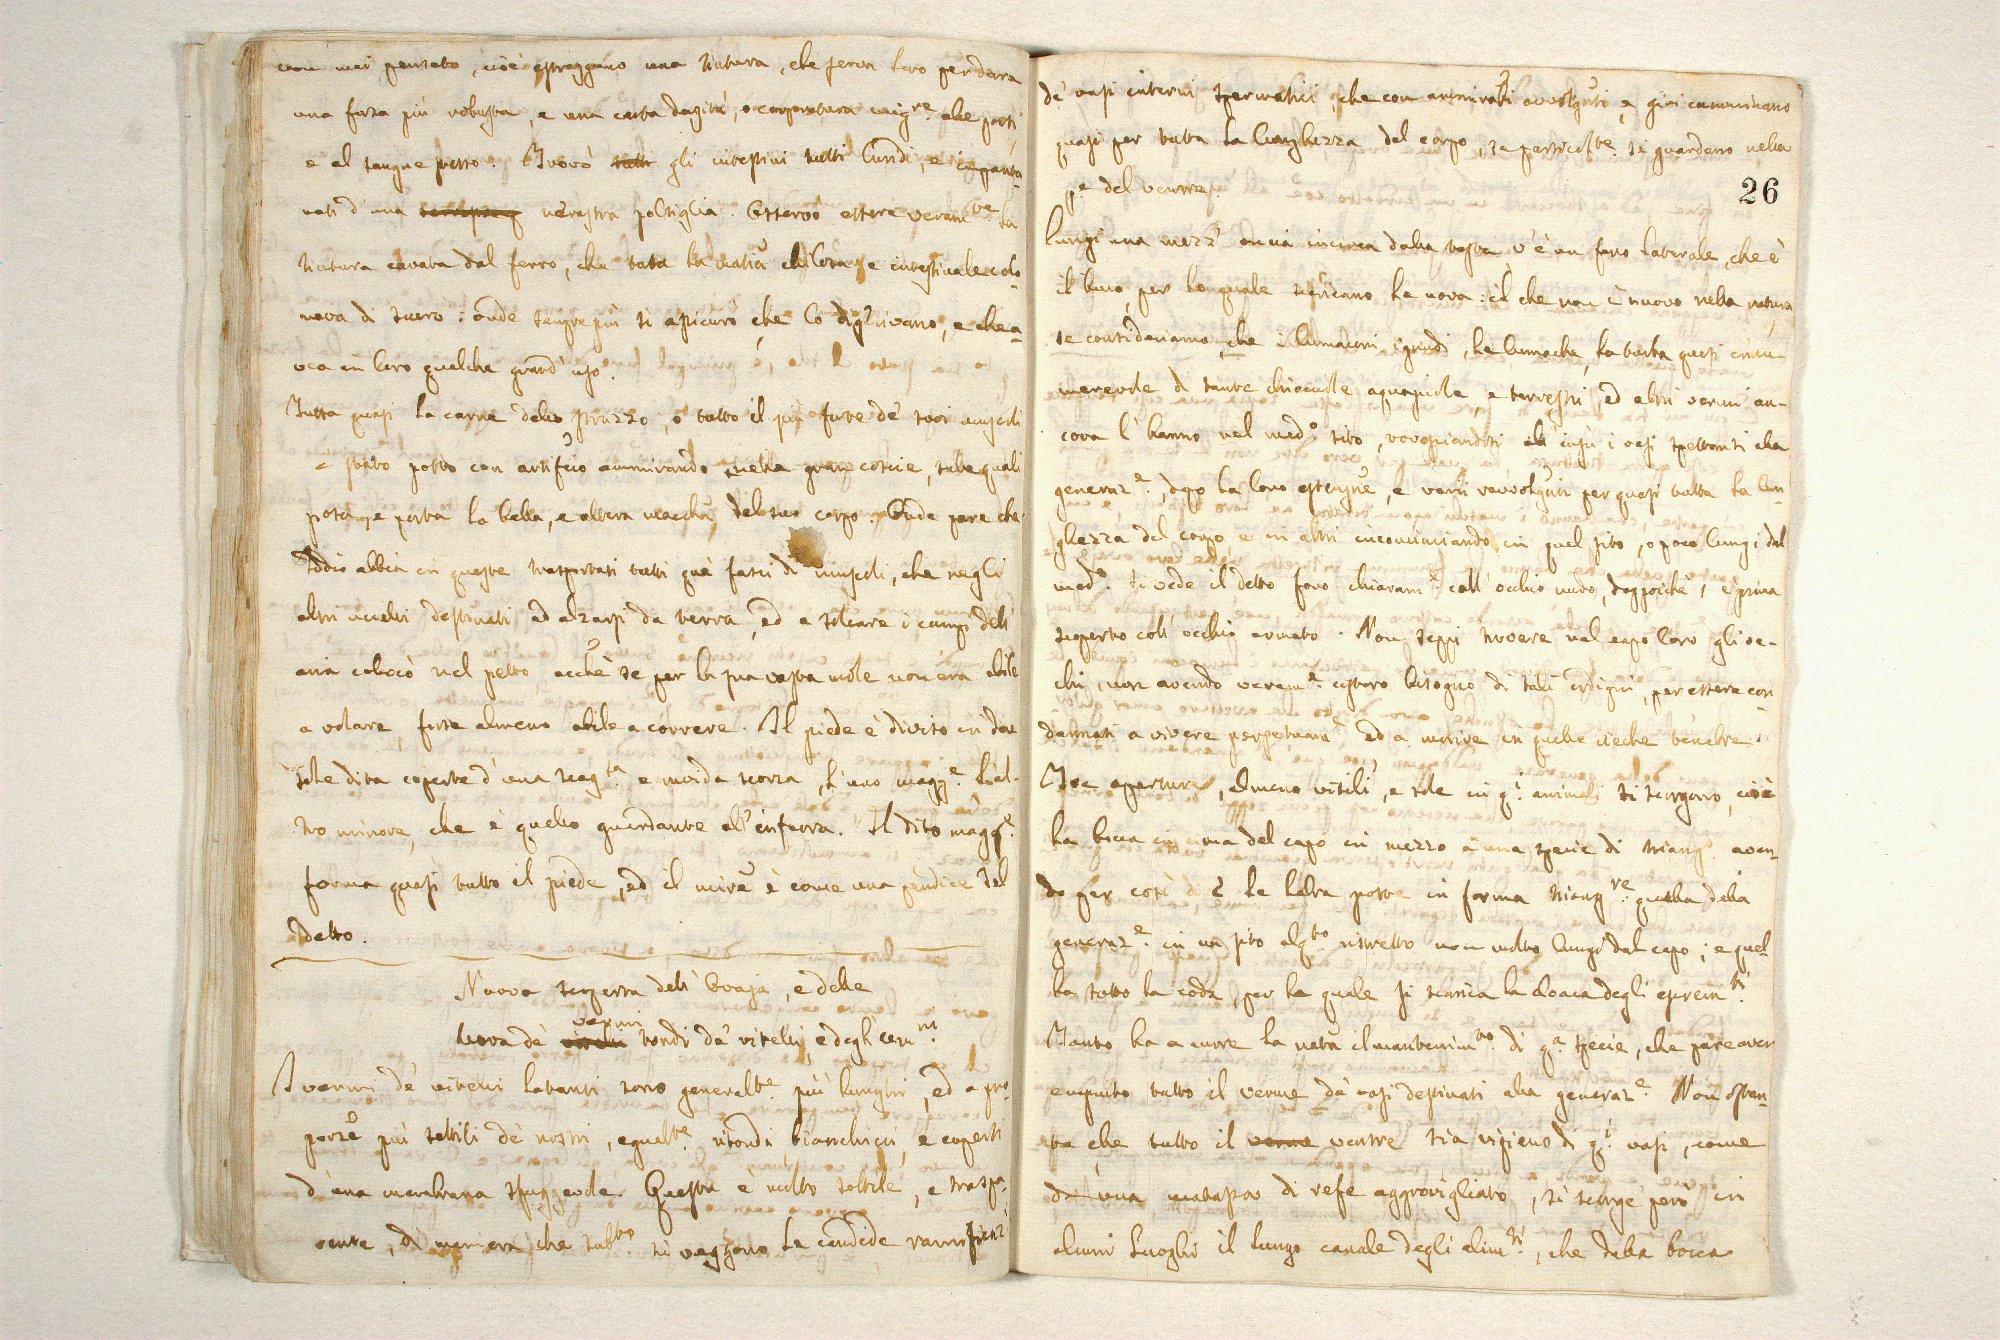 mai pensato, cioè estraggano una tintura, che serva loro per dare
una forza più robusta, e una certa dagità, o corporatura migre. alle parti,
e al sangue stesso. Trovò tutti gli intestini tutti lividi, e impanta-
nati d'una nerastra poltiglia. Osservò essere veramte. la
tintura cavata dal ferro, che tutta la matia chilosa, e intestinale colo-
rava di scuro: onde sempre più si assicurò, che lo digerivano, e che a-
vea in loro qualche grand' uso.
Tutta quasi la carne dello struzzo, o tutto il più forte de' suoi muscoli
è stato posto con artificio ammirando nelle gran coscie, sulle quali
posa, e porta la bella, e altera macchina del suo corpo. Onde pare che
Iddio abbia in queste trasportati tutti que' fasci di muscoli, che negli
altri uccelli destinati ad alzarsi da terra, ed a solcare i campi dell'
aria colocò nel petto, acchè se per la sua vasta mole non era abile
a volare fosse almeno abile a correre. Il piede è diviso in due
sole dita coperte d'una scagsa e ruvida scorza, l'uno magge. l'al-
tro minore, che è quello guardante all'infuora. Il dito magge.
forma quasi tutto il piede, ed il mire è come una pendice del
detto.
Nuova scoperta dell' Ovaja, e delle
uova de' vermi tondi de' vitelli, e degli uomni.
I vermi de' vitelli lattanti sono generalte. più lunghi, ed a pro-
porze più sottili de' nostri, egualte. ritondi, bianchicci, e coperti
d'una membrana sfuggevole. Questa è molto sottile, e traspa-
rente, di maniera, che subto. si veggono le candide ramificazi
de' vasi interni spermatici, che con ammirabili avvolgiti, e giri camminano
quasi per tutta la lunghezza del corpo, se particolte. se guardano nella
pe. del ventre.
Lungi una mezz' oncia incirca dalla testa v'è un foro laterale, che è
il buco, per lo quale scaricano le uova: il che non è nuovo nella natura,
se consideriamo, che i lumaconi ignudi, le lumache, la turba quasi innu-
merevole di tante chiocciole aquajuole, e terrestri, ed altri vermi an-
cora l' hanno nel medo. sito, rovesciandosi all' insù i vasi spettanti alla
generaze., dopo la loro estensne, e varii ravvolgiti per quasi tutta la lun-
ghezza del corpo, e in altri incominciando in quel sito, o poco lungi dal
medo. Si vede il detto foro chiaramte. coll' occhio nudo, dappoichè s' è prima
scoperto coll' occhio armato. Non seppi trovare nel capo loro gli oc-
chi, non avendo verame. costoro bisogno di tali ordigni, per essere con-
dannati a vivere perpetuame. ed a morire in quelle cieche tenebre.
Tre aperture, almeno visibili, e sole in qi. animali si scorgono, cioè
la bocca in cima del capo in mezzo a una specie di triango. aven-
do per così d. le labra poste in forma triangre. quella della
generaze. in un sito alqto. ristretto non molto lungi dal capo; e quel-
la sotto la coda, per la quale si scarica la cloaca degli escremti.
Tanto ha a cuore la natura il mantenimto. di qa. specie, che pare aver
empiuto tutto il verme de' vasi destinati alla generaze. Non ostan-
te che tutto il verme ventre sia ripieno di qi. vasi, come
da una matassa di refe aggrovigliato, si scorge però in
alcuni luoghi il lungo canale degli alimti., che dalla bocca
26